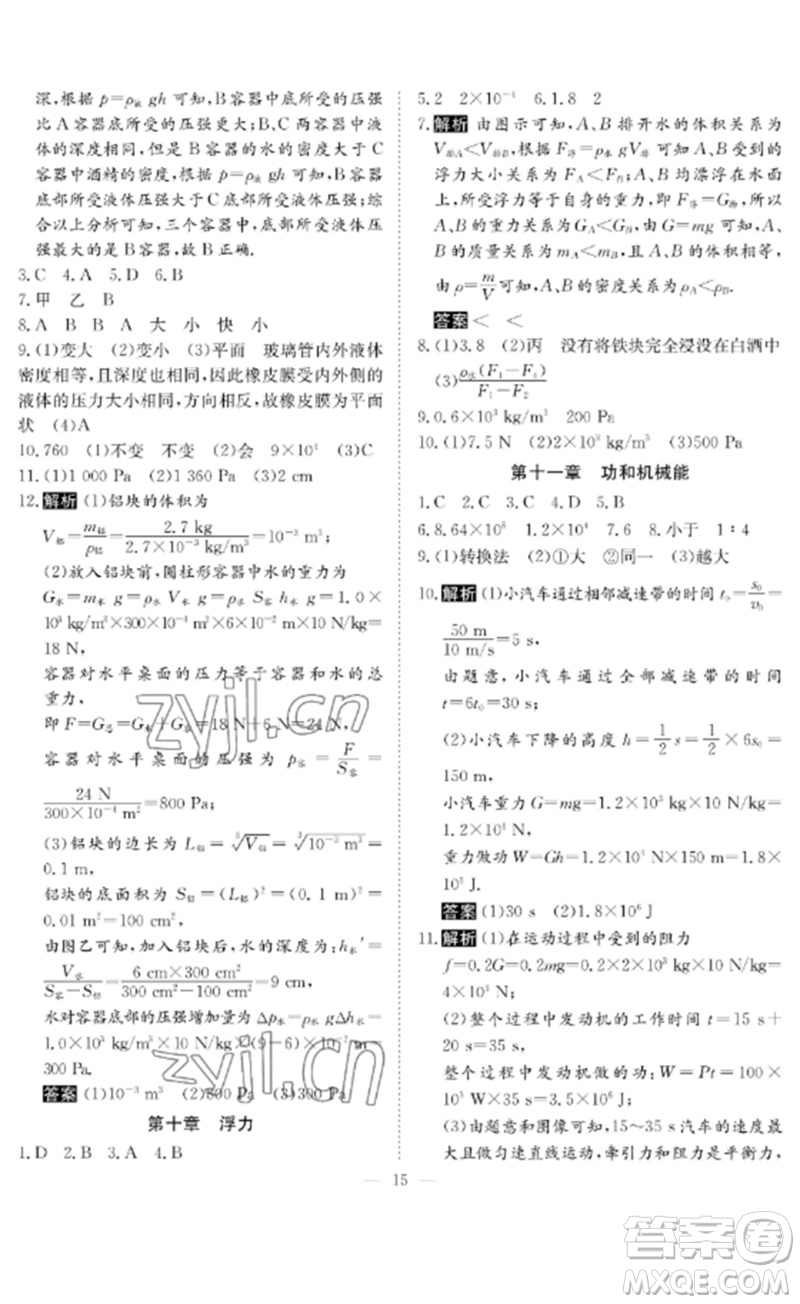 深,根据 p=ρ液 gh 可知,B容器中底所受的压强
比A容器底所受的压强更大;B、C两容器中液
体的深度相同,但是B容器的水的密度大于C
容器中酒精的密度,根据 p=ρ液 gh 可知,B容器
底部所受液体压强大于C底部所受的压强;综
合以上分析可知,三个容器中,底部所受液体压
强最大的是B容器,故B正确.
3.C 4.A 5.D 6.B
7.甲 乙 B
8.A B B A 大 小 快 小
9.(1)变大 (2)变小 (3)平面 玻璃管内外液体
密度相等,且深度也相同,因此橡皮膜受内外两侧的
液体的压力大小相同,方向相反,故橡皮膜为平面
状 (4)A
10.760 (1)不变 不变 (2)会 9×10⁴ (3)C
11.(1)1 000 Pa (2)1 360 Pa (3)变大
12.解析 (1)铝块的体积为
V铝=m铝/ρ铝=2.7 kg/2.7×10⁻³ kg/m³=10⁻³ m³
(2)放入铝块前,圆柱形容器中水的重力为
G水=m水 g=ρ水 V水 g=ρ水 S容 h水 g=1.0×
10³ kg/m³×300×10⁻⁴ m²×6×10⁻² m×10 N/kg=
18 N,
容器对水平桌面的压力等于容器和水的总
重力,
即 F=G总=G水+G容=18 N+6 N=24 N,
容器对水平桌面的压强为 p容=F/S容=
24 N/300×10⁻⁴ m²=800 Pa;
(3)铝块的边长为 L铝=∛V铝=∛10⁻³ m³=
0.1 m,
铝块的底面积为 S铝=(L铝)²=(0.1 m)²=
0.01 m²=100 cm²,
由图乙可知,加入铝块后,水的深度为:h水′=
V水/S容-S铝=6 cm×300 cm²/300 cm²-100 cm²=9 cm,
水对容器底部的压强增加量为 Δp水=ρ水 gΔh水=
1.0×10³ kg/m³×10 N/kg×(9-6)×10⁻² m=
300 Pa.
答案 (1)10⁻³ m³ (2)800 Pa (3)300 Pa
第十章 浮力
1.D 2.B 3.A 4.B
5.2 2×10⁻⁴ 6.1.8 2
7.解析 由图示可知,A、B排开水的体积关系为
V排A<V排B,根据 F浮=ρ水 gV排 可知 A、B受到的
浮力大小关系为 FA<FB;A、B均漂浮在水面
上,所受浮力等于自身的重力,即 F浮=G物,所以
A、B的重力关系为 GA<GB,由 G=mg 可知,A、
B的质量关系为 mA<mB;A、B的体积相等,
由 ρ=m/V 可知,A、B的密度关系为 ρA<ρB.
答案 < <
8.(1)3.8 (2)丙 没有将铁块完全浸没在白酒中
(3)ρ水(F₁-F₄)/F₁-F₃
9.0.6×10³ kg/m³ 200 Pa
10.(1)7.5 N (2)2×10³ kg/m³ (3)500 Pa
第十一章 功和机械能
1.C 2.C 3.C 4.D 5.B
6.8.64×10⁸ 1.2×10⁴ 7.6 8.小于 1∶4
9.(1)转换法 (2)①大 ②同一 (3)越大
10.解析 (1)小汽车通过相邻减速带的时间 t₀=s₀/v₀=
50 m/10 m/s=5 s,
由题意,小汽车通过全部减速带的时间
t=6t₀=30 s;
(2)小汽车下降的高度 h=1/2 s=1/2×6s₀=
150 m,
小汽车重力 G=mg=1.2×10³ kg×10 N/kg=
1.2×10⁴ N,
重力做功 W=Gh=1.2×10⁴ N×150 m=1.8×
10⁶ J.
答案 (1)30 s (2)1.8×10⁶ J
11.解析 (1)在运动过程中受到的阻力
f=0.2G=0.2mg=0.2×2×10³ kg×10 N/kg=
4×10³ N;
(2)整个过程中发动机的工作时间 t=15 s+
20 s=35 s,
整个过程发动机做的功:W=Pt=100×
10³ W×35 s=3.5×10⁶ J;
(3)由题意和图像可知,15~35 s汽车在水平路
面上做匀速直线运动,牵引力和阻力是平衡力,
15
zyjl.cn
zyjl.cn
答案卷
MXQE.COM